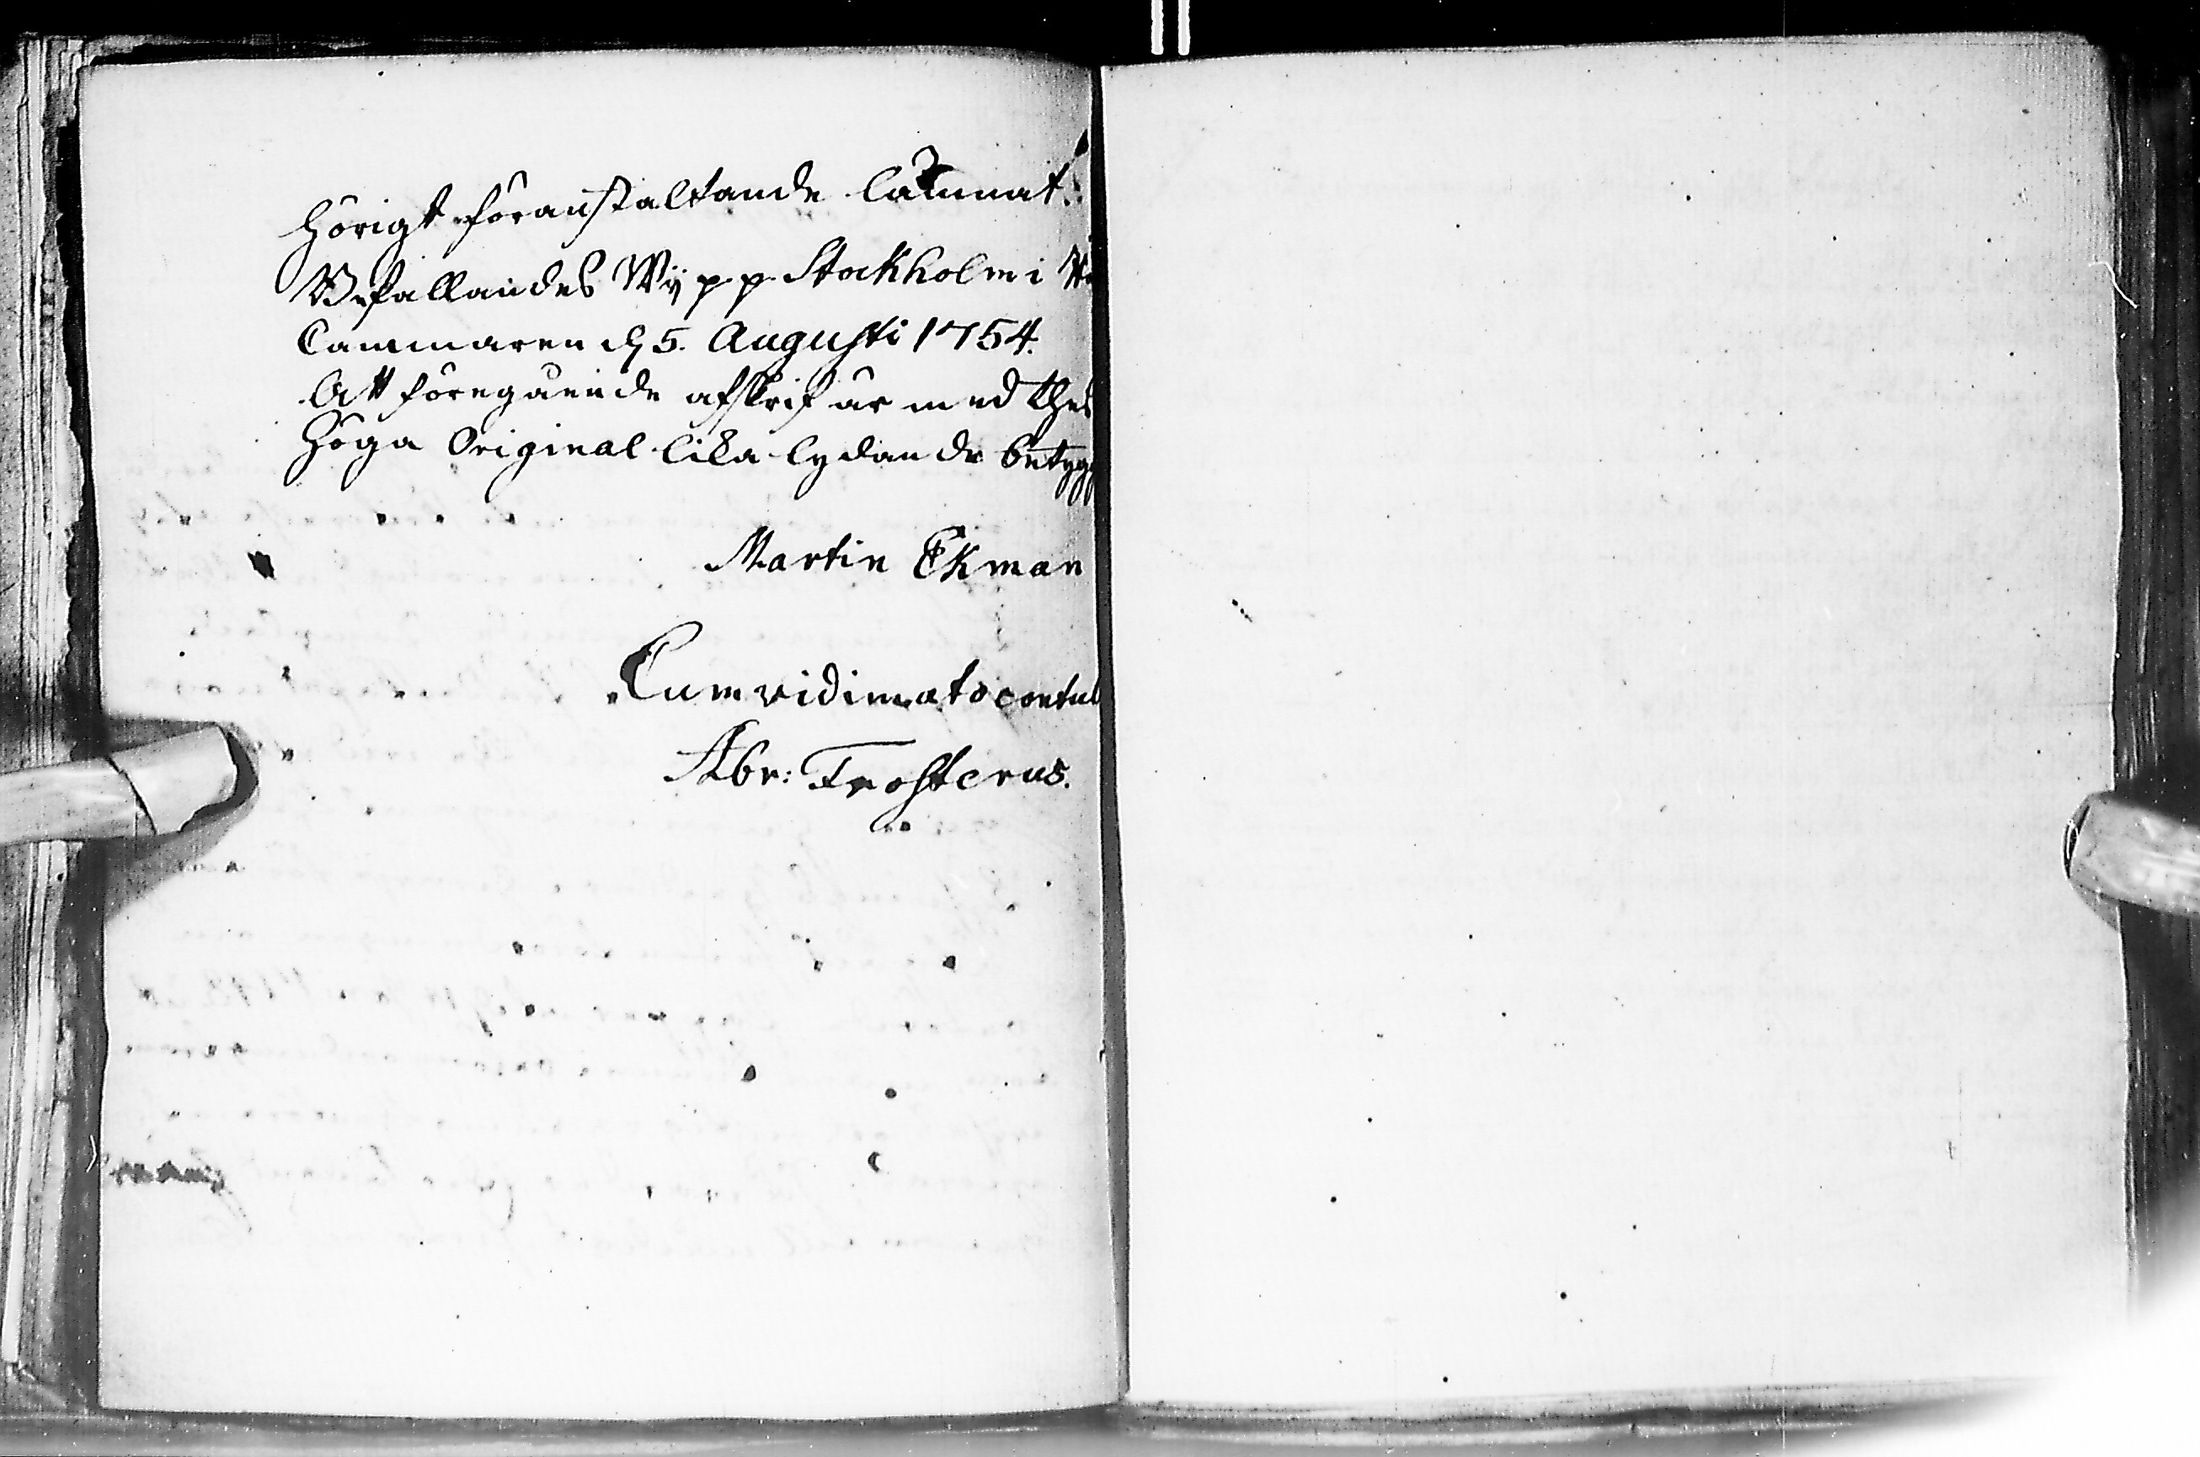 hörigt föranstaltande lämnat.
Befallandes Wij p. p. Stockholm i
Cammaren d. 5. Augusti 1754.
Att föregående afskrift är med thes
Höga Original lika lydande betyg
Martin Ekman
Cum vidimato contul
Abr: Frosterus.